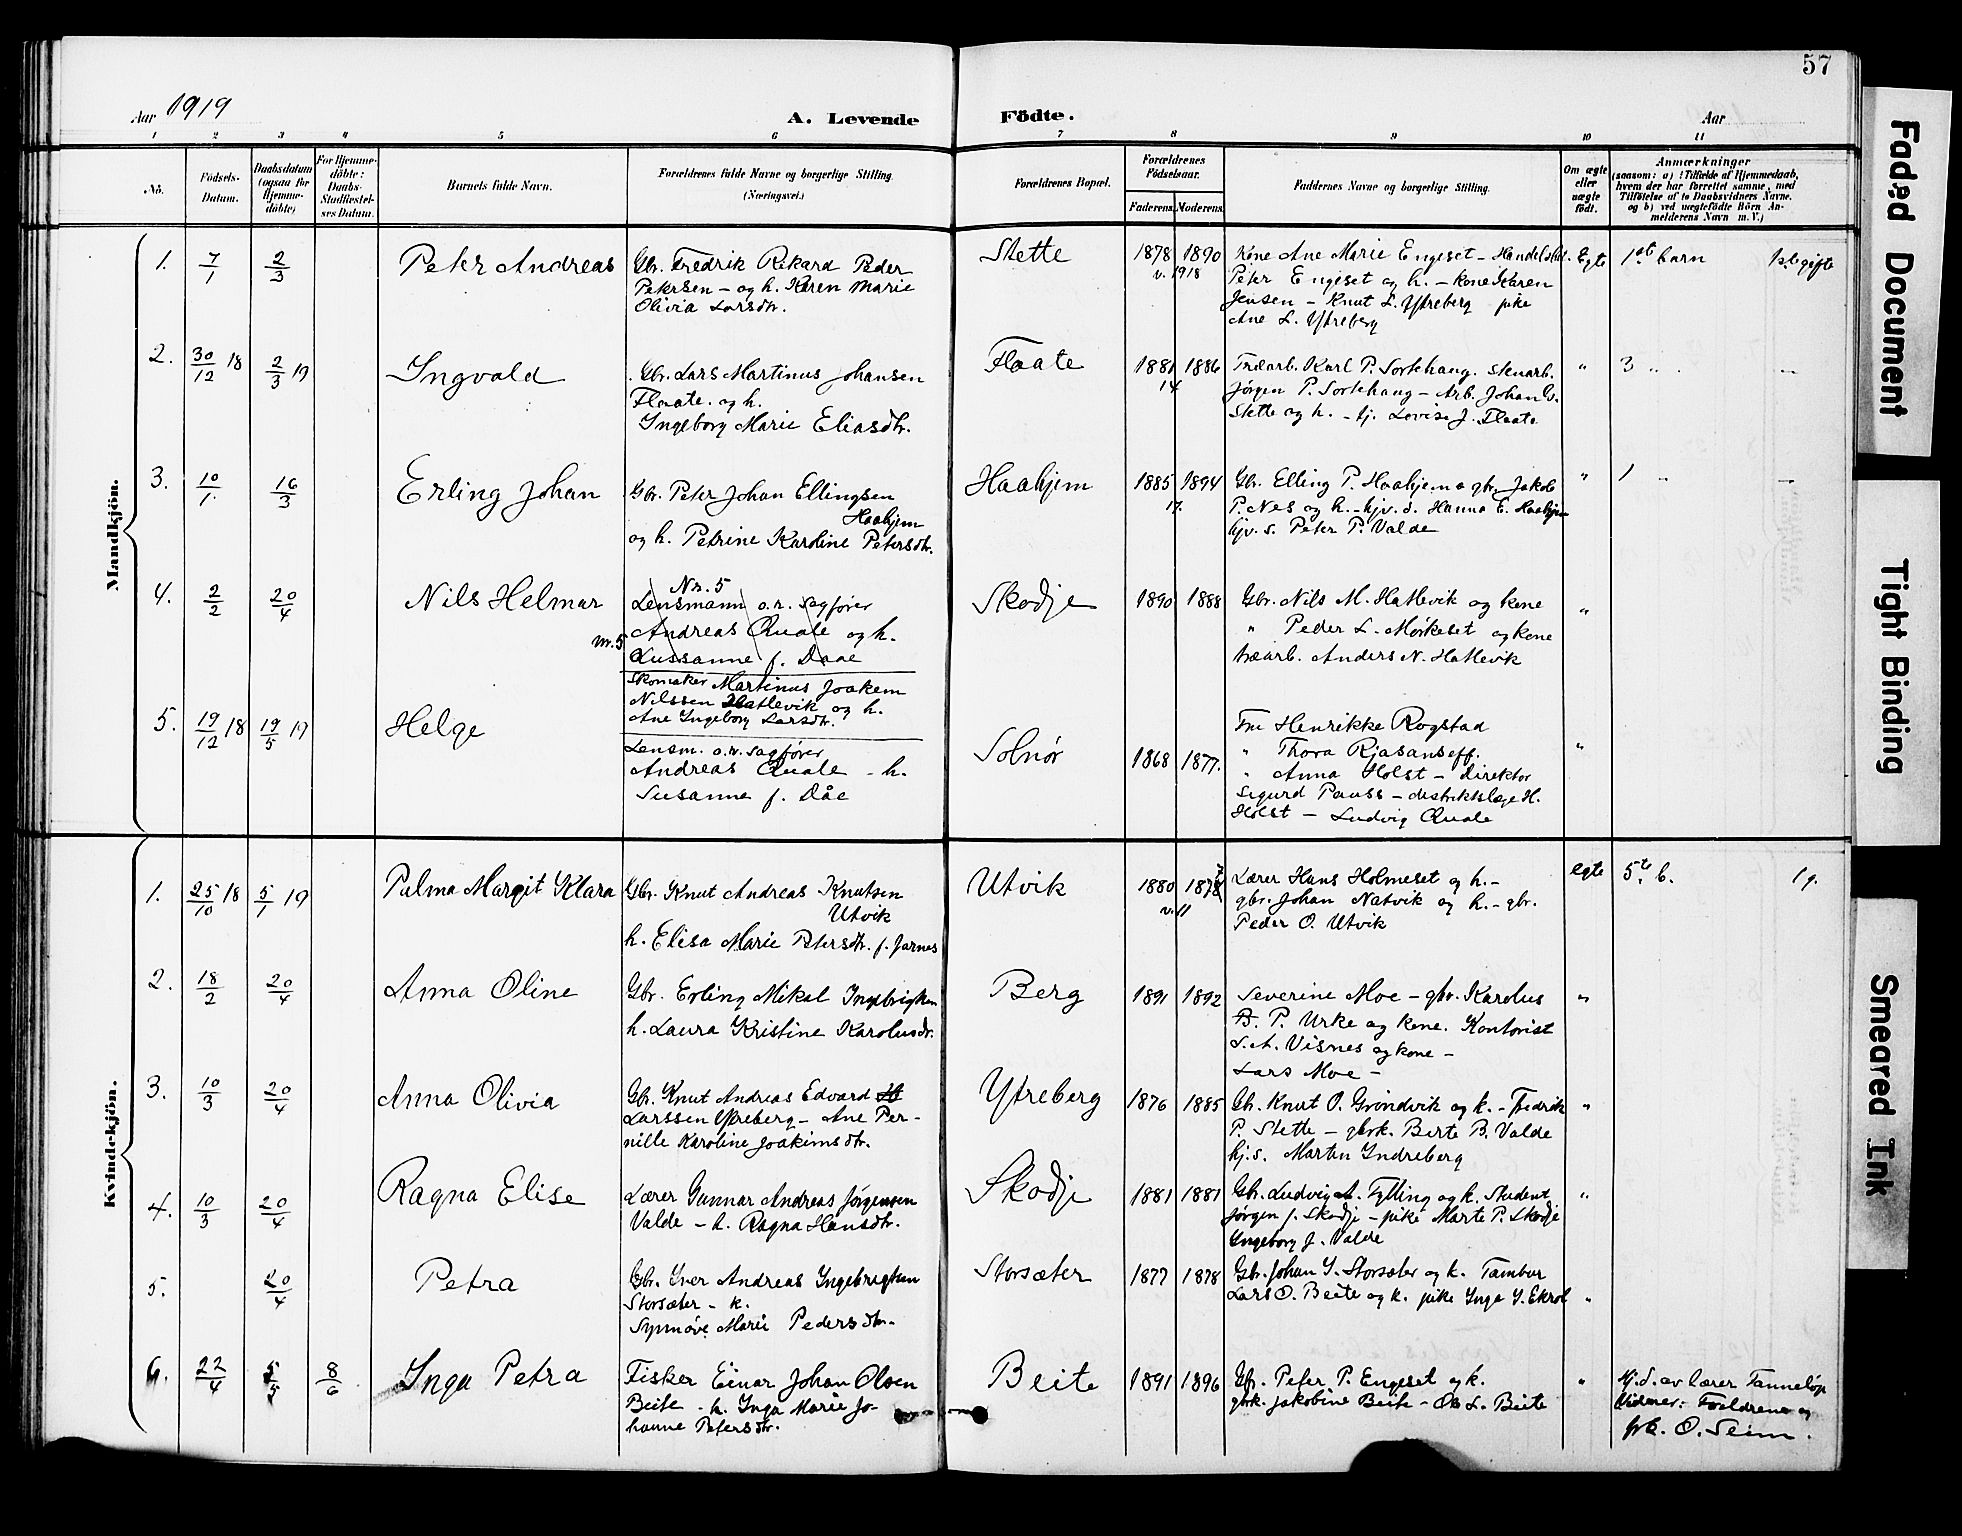 57
Aar 1919
A. Levende Födte.
Aar
1 2 3 4 5 6 7 8 9 10 11
No.
Födsels-Datum.
Daabsdatum (ogsaa for Hjemme-döbte)
For Hjemme-döbte: Daabs-Stadfæstel-ses Datum.
Barnets fulde Navn.
Forældrenes fulde Navne og borgerlige Stilling. (Næringsvei.)
Forældrenes Bopæl.
Forældrenes Födselsaar.
Faderens. Moderens.
Faddernes Navne og borgerlige Stilling.
Om ægte eller uægte födt.
Anmærkninger
(saasom: a) i Tilfælde af Hjemmedaab,
hvem der har forrettet samme, med
Tilföielse af to Daabsvidners Navne.
og b) ved uægtefödte Börn An-
melderens Navn m. V.)
Mandkjön.
1. 7/1 2/3 Peter Andreas
Gbr. Fredrik Rikard Peder
Petersen - og h. Karen Marie
Olivia Larsdtr.
Stette 1878 1890
v. 1918
Kone Ane Marie Engeset - Handelsbet.
Peter Engeset og h. - kone Karen
Jensen - Knut L. Ytreberg pike
Ane L. Ytreberg
Egte 1ste barn 1ste gifte
2. 30/12 18 2/3 19 Ingvald
Gbr. Lars Martinus Johansen
Flaate. og h.
Ingeborg Marie Eliasdtr.
Flaate 1881 1886
14
Træarb. Karl P. Sortehaug. Stenarb.
Jørgen P. Sortehaug - Arb. Johan G.
Stette og h. - tj. Lovise J. Flaate
" 3 " "
3. 10/1 16/3 Erling Johan
Gbr. Peter Johan Ellingsen
Haahjem
og h. Petrine Karoline Petersdtr.
Haahjem 1885 1894
17.
Gbr. Elling P. Haahjem o gbr. Jakob
P. Nes og h. - hjv. d. Hanna E. Haahjem
hjv. s. Peter P. Valde
" 1 "
4. 2/2 20/4 Nils Helmar
Nr. 5
Lensmann o.r. sagfører
Andreas Quale og h.
Sussanne f. Daae
nr. 5
Skomaker Martinus Joakem
Nilssen Hatlevik og h.
Ane Ingeborg Larsdtr.
Skodje 1890 1888
Gbr. Nils M. Hatlevik og kone
" Peder L. Mørkeset og kone
træarb. Anders N. Hatlevik
"
5. 19/12 18 19/5 19 Helge
Lensm. o.r. sagfører
Andreas Quale - h.
Susanne f. Dåe
Solnør 1868 1877.
Fru Henrikke Rogstad
" Thora Rjasanseff.
" Anna Holst - direktør
Sigurd Pauss - distriktslæge H.
Holst - Ludvig Quale
"
Kvindekjön.
1. 25/10 18 5/1 19 Palma Margit Klara
Gbr. Knut Andreas Knutsen
Utvik
h. Elisa Marie Petersdtr. f. Jarnes
Utvik 1880 1878
v. 11
Lærer Hans Holmeset og h. -
gbr. Johan Natvik og h. - gbr.
Peder O. Utvik
egte 5te b. 1 g.
2. 18/2 20/4 Anna Oline
Gbr. Erling Mikal Ingebrigtsen
h. Laura Kristine Karolusdr.
Berg 1891 1892
Severine Moe - gbr. Karolus
B. P. Urke og kone. Kontorist
S. A. Visnes og kone -
Lars Moe -
"
3. 10/3 20/4 Anna Olivia
Gbr. Knut Andreas Edvard
Larssen Ytreberg - Ane Per-
nille Karoline Joakimsdtr.
Ytreberg 1876 1885
Gbr. Knut O. Grøndvik og k. - Fredrik
P. Stette - gbrk. Berte B. Valde
hj. s. Martin Indreberg
"
4. 10/3 20/4 Ragna Elise
Lærer Gunnar Andreas Jørgensen
Valde - h. Ragna Hansdtr.
Skodje 1881 1881
Gbr. Ludvig A. Fylling og k. Student
Jørgen J. Skodje - pike Marte P. Skodje
Ingeborg J. Valde
"
5. 20/4 Petra
Gbr. Iver Andreas Ingebrigtsen
Storsæter - k.
Synnøve Marie Pedersdtr.
Storsæter 1877 1878
Gbr. Johan I. Storsæter og k. Tambur
Lars O. Beite og k. pike Inga I. Ekrol
"
6. 22/4 5/5 8/6 Inga Petra
Fisker Einar Johan Olsen
Beite - h. Inga Marie Jo-
hanne Petersdtr.
Beite 1891 1896
Gbr. Peter P. Engeset og k.
gbrk. Jakobine Beite - Ole L. Beite
"
Hj. d. av lærer Tanneløp
Vidner: Forældrene og
O. Seim.
Faded Document
Tight Binding
Smeared Ink